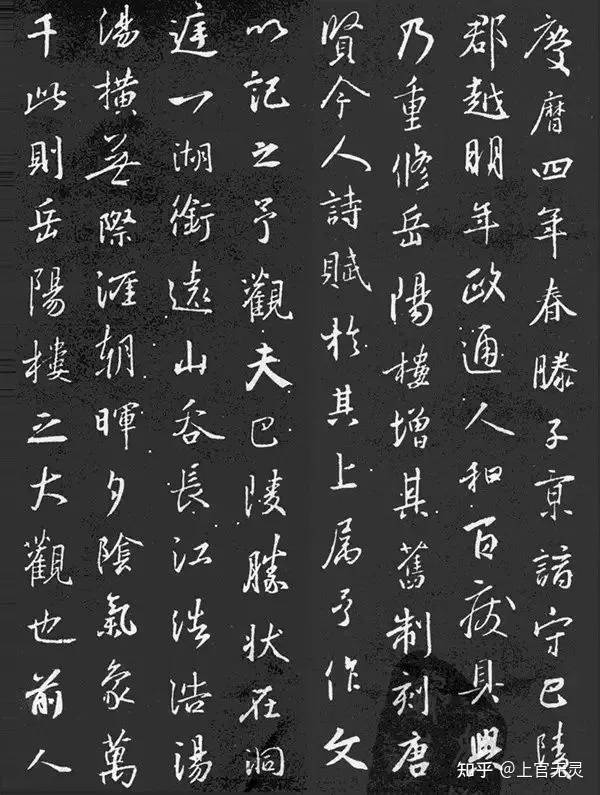 慶曆四年春滕子京謫守巴陵
郡越明年政通人和百廢具興
乃重修岳陽樓增其舊制刻唐
賢今人詩賦於其上属予作文
以記之予觀夫巴陵勝狀在洞
庭一湖銜遠山吞長江浩浩湯
湯橫無際涯朝暉夕陰氣象萬
千此則岳陽樓之大觀也前人
知乎 @上官无灵